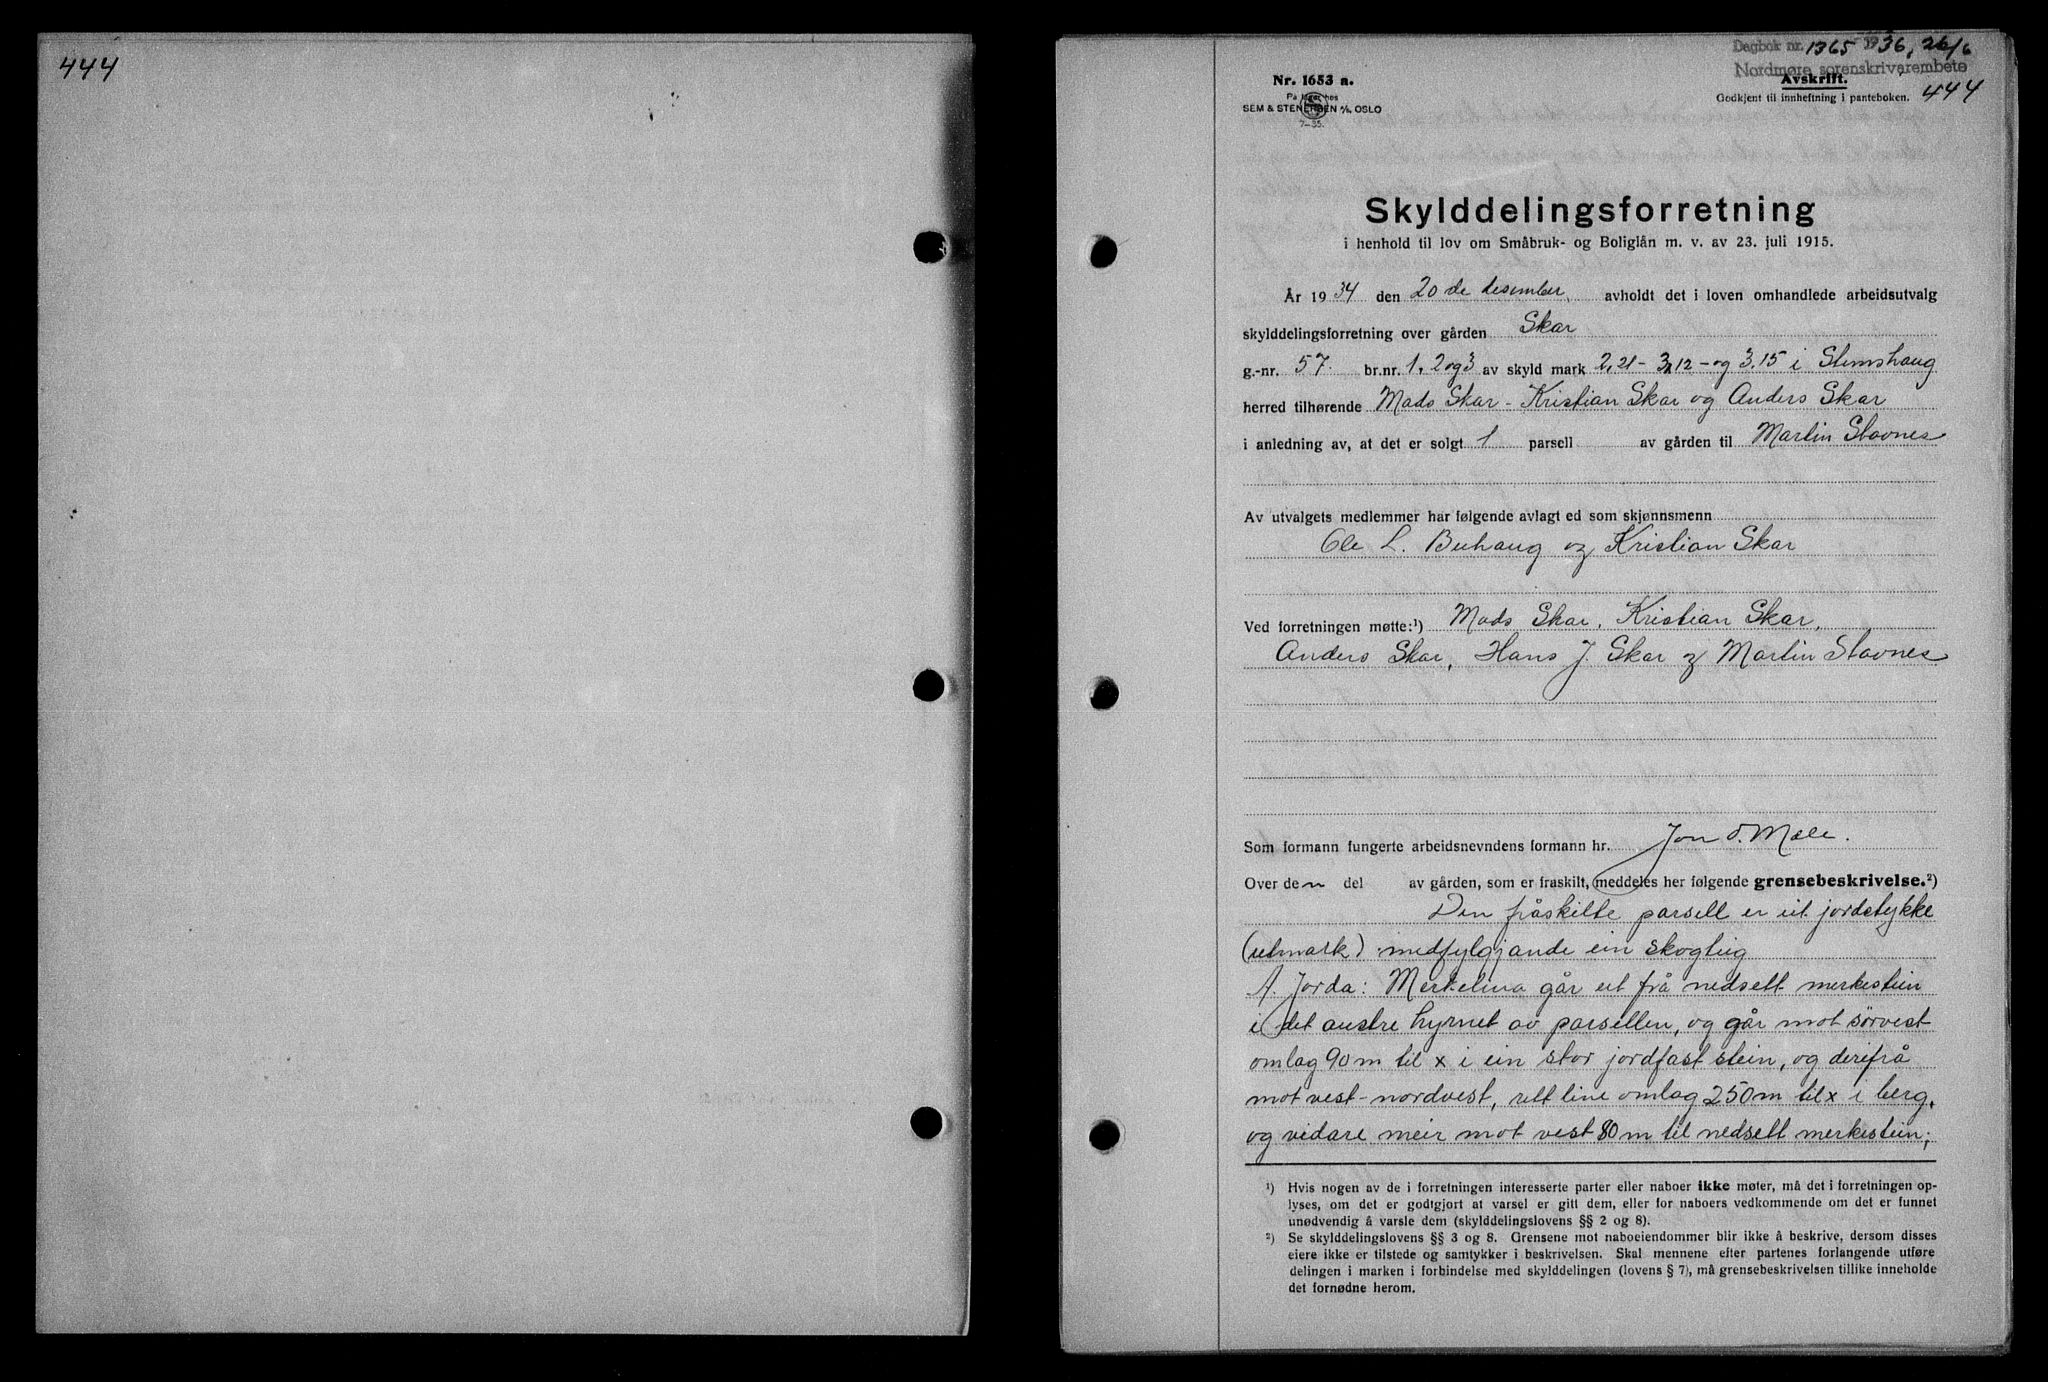 444
Dagbok nr. 1365 1936, 26/6
Nordmøre sorenskriverembete
Nr. 1653 a.
Avskrift.
På lager hos
Godkjent til innheftning i panteboken. 444
SEM & STENERSEN A/S, OSLO
7-35.
Skylddelingsforretning
i henhold til lov om Småbruk- og Boliglån m. v. av 23. juli 1915.
År 1934 den 20de desember avholdt det i loven omhandlede arbeidsutvalg
skylddelingsforretning over gården Skar
g.-nr. 57 br.nr. 1, 2 og 3 av skyld mark 2,21 - 3,12 - og 3.15 i Stemshaug
herred tilhørende Mads Skar - Kristian Skar og Anders Skar
i anledning av, at det er solgt 1 parsell av gården til Martin Stavnes
Av utvalgets medlemmer har følgende avlagt ed som skjønnsmenn
Ole L. Buhaug og Kristian Skar
Ved forretningen møtte:¹) Mads Skar, Kristian Skar,
Anders Skar, Hans J. Skar og Martin Stavnes
Som formann fungerte arbeidsnevndens formann hr. Jon O. Mæle.
Over den del av gården, som er fraskilt, meddeles her følgende grensebeskrivelse.²)
Den fråskilte parsell er eit jordstykke
(utmark) medfylgjande ein skogteig
A. Jorda: Merkelina går ut frå nedsett merkestein
i det austre hyrnet av parsellen, og går mot sørvest
omlag 90 m til x i ein stor jordfast stein, og derifrå
mot vest-nordvest, rett line omlag 250 m til x i berg,
og vidare meir mot vest 80 m til nedsett merkestein;
¹) Hvis nogen av de i forretningen interesserte parter eller naboer ikke møter, må det i forretningen op-
lyses, om det er godtgjort at varsel er gitt dem, eller for naboers vedkommende om det er funnet
unødvendig å varsle dem (skylddelingslovens §§ 2 og 8).
²) Se skylddelingslovens §§ 3 og 8. Grensene mot naboeiendommer blir ikke å beskrive, dersom disses
eiere ikke er tilstede og samtykker i beskrivelsen. Skal mennene efter partenes forlangende utføre
delingen i marken i forbindelse med skylddelingen (lovens § 7), må grensebeskrivelsen tillike inneholde
det fornødne herom.